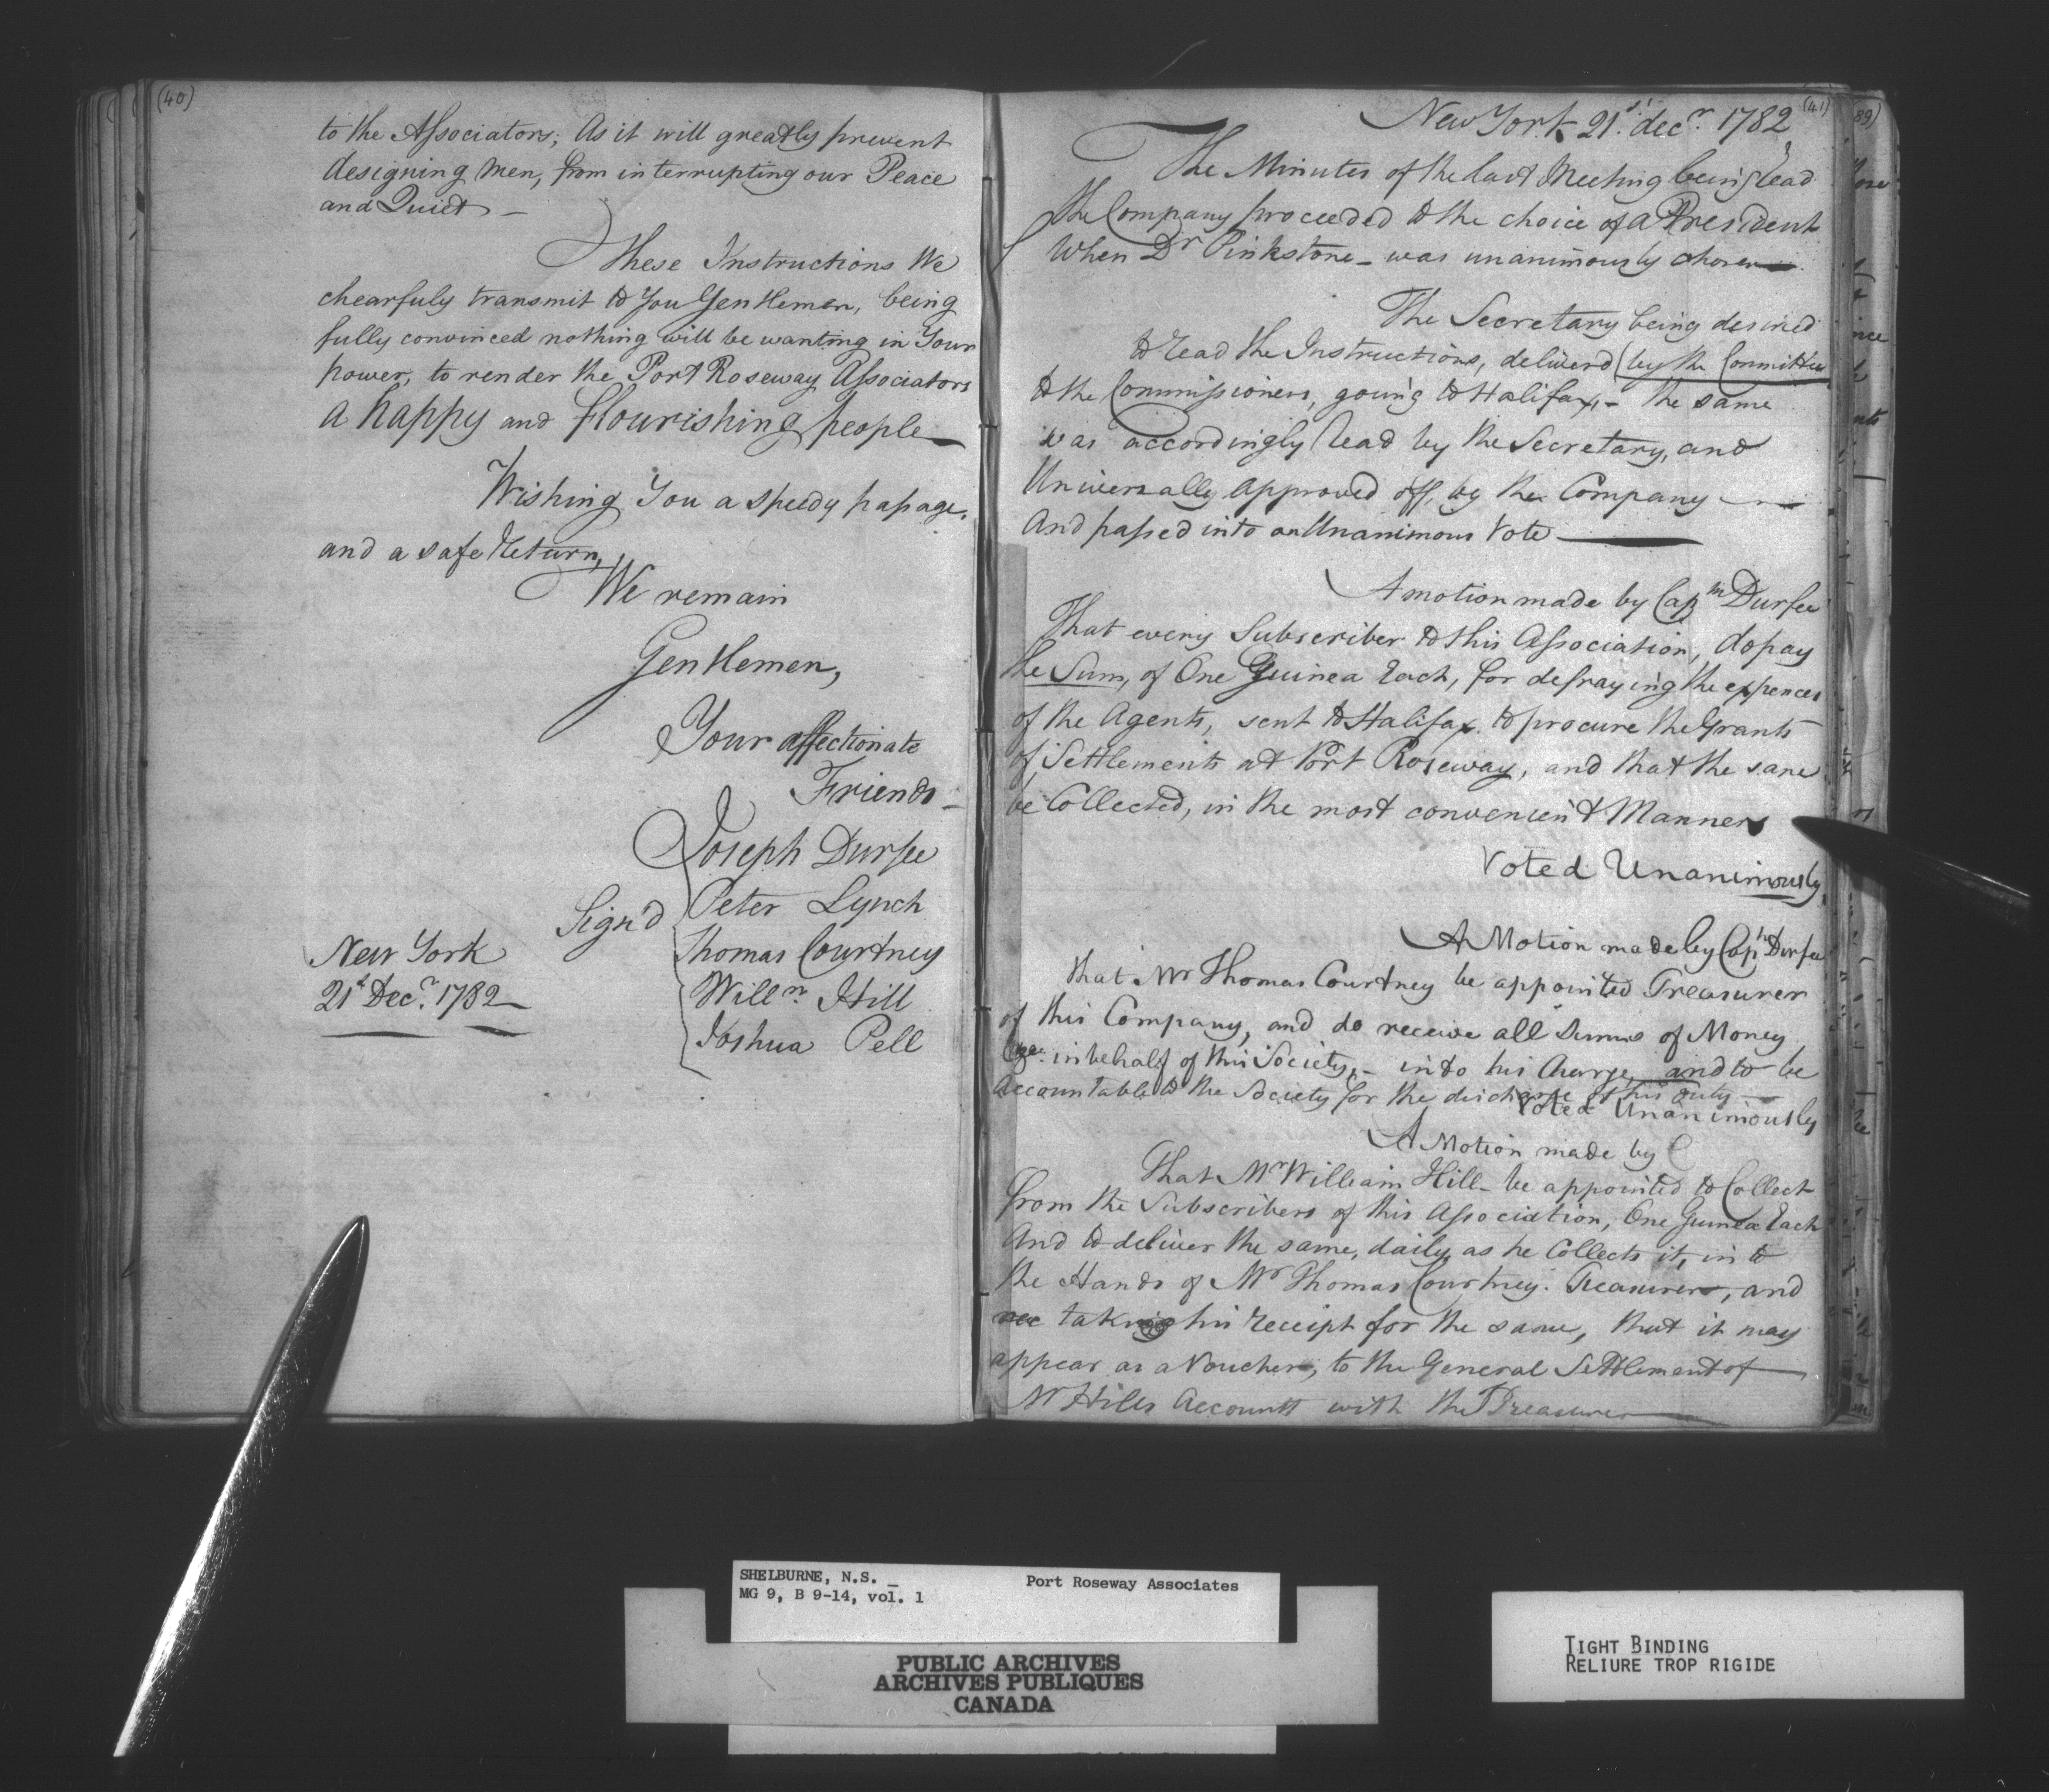 (40)
to the Associators; As it will greatly prevent
designing men, from interrupting our Peace
and Quiet -
These Instructions We
chearfuly transmit to You Gentlemen, being
fully convinced nothing will be wanting in Your
power, to render the Port Roseway Associators
a happy and flourishing people
Wishing You a speedy passage,
and a safe Return,
We remain
Gentlemen,
Your affectionate
Friends -
Joseph Durfee
Sign'd Peter Lynch
Thomas Courtney
Willm Hill
Joshua Pell
New York
21st Decr. 1782
(41)
New York 21st decr. 1782
The Minutes of the last Meeting being read
the Company proceeded to the choice of a President
When Dr Pinkstone - was unanimously chosen
The Secretary being desired
to read the Instructions, deliverd (by the Committee
to the Commissioners, going to Halifax, - the same
was accordingly read by the Secretary, and
Universally approved off, by the Company
And passed into an Unanimous Vote
A motion made by Capтn Durfee
That every Subscriber to this Association, do pay
the Sum, of One Guinea Each, for defraying the expences
of the Agents, sent to Halifax to procure the Grants
of Settlements at Port Roseway, and that the same
be Collected, in the most convenient Manner
Voted Unanimously
A Motion made by Captn Durfee
that Mr Thomas Courtney be appointed Treasurer
of this Company, and do receive all Sums of Money
in behalf of this Society, - into his Charge, and to be
Accountable to the Society for the discharge of his Duty
Voted Unanimously
A Motion made by C
That Mr William Hill - be appointed to Collect
from the Subscribers of this Association, One Guinea Each
And to deliver the same, daily as he Collects it, in to
the Hands of Mr Thomas Courtney. Treasurer, and
taking his receipt for the same, that it may
appear as a Voucher, to the General Settlement of
Mr Hills Accountt with the Treasurer
(89)
SHELBURNE, N.S. _ Port Roseway Associates
MG 9, B 9-14, vol. 1
PUBLIC ARCHIVES
ARCHIVES PUBLIQUES
CANADA
TIGHT BINDING
RELIURE TROP RIGIDE